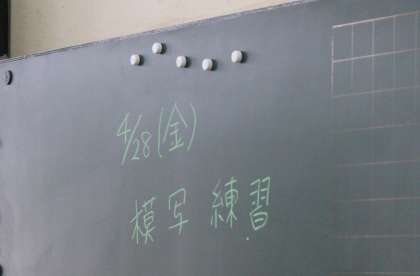 4/28(金)
模写 練習